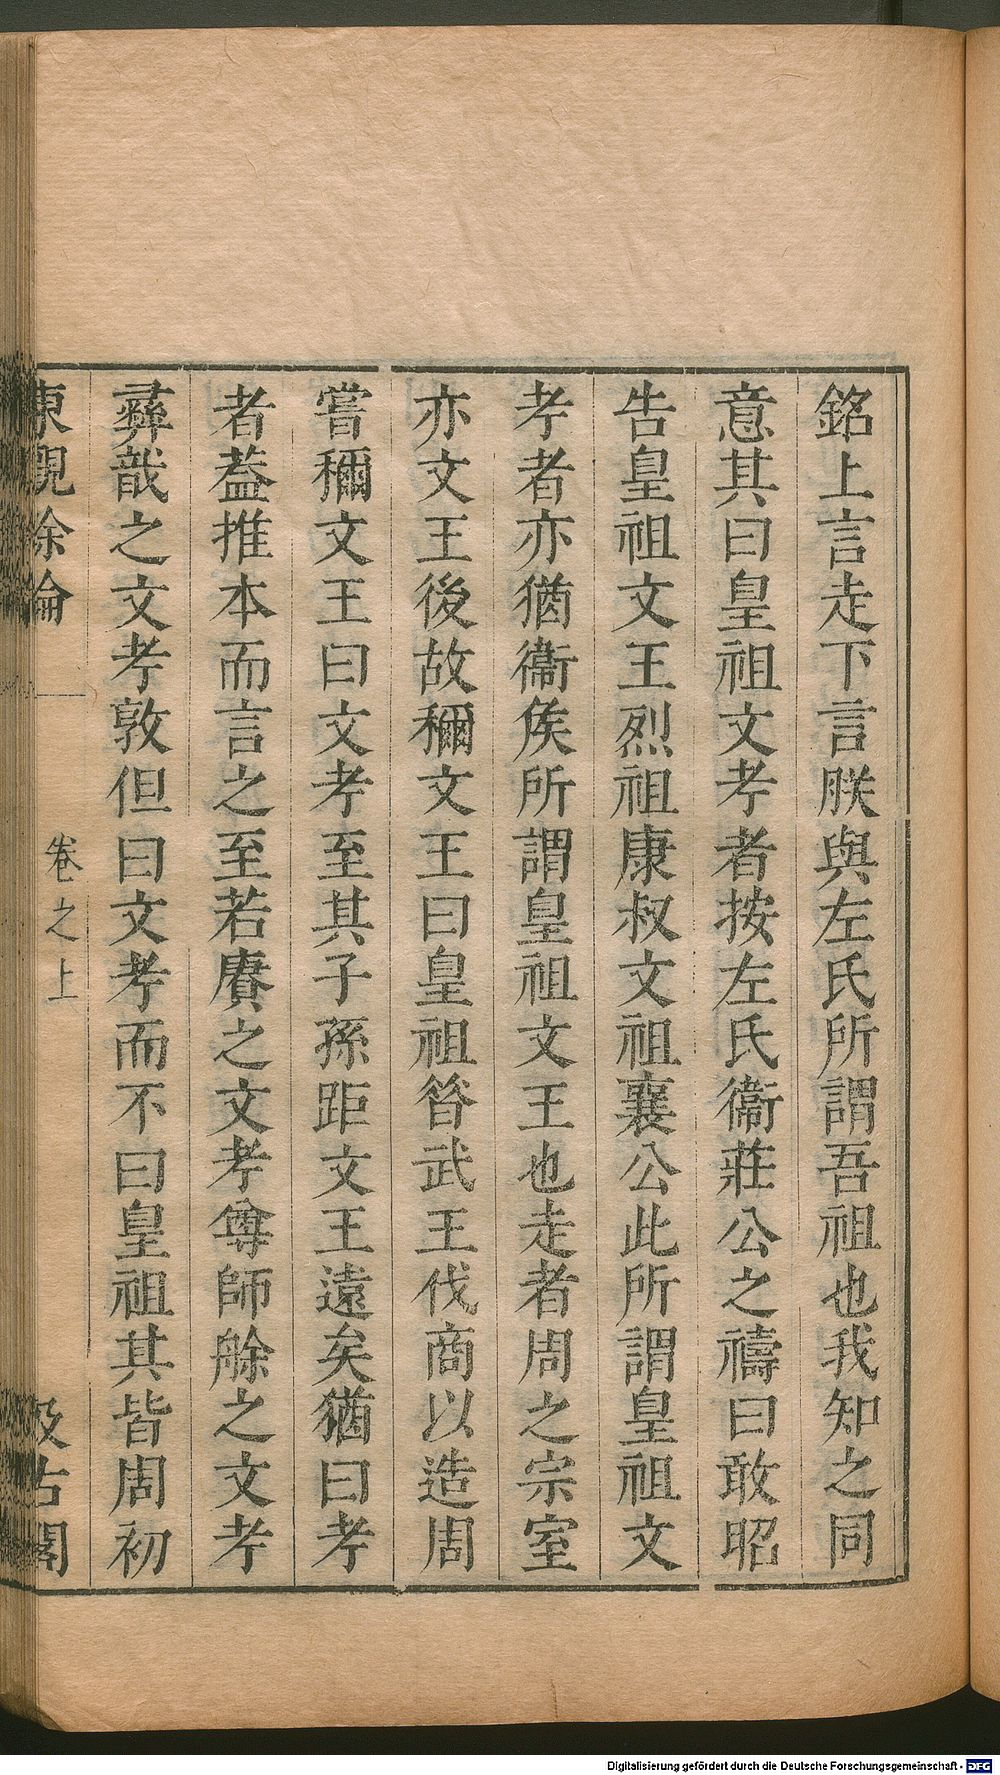 銘上言走下言朕與左氏所謂吾祖也我知之同
意其曰皇祖文孝者按左氏衞莊公之禱曰敢昭
告皇祖文王烈祖康叔文祖襄公此所謂皇祖文
孝者亦猶衞侯所謂皇祖文王也走者周之宗室
亦文王後故禰文王曰皇祖昝武王伐商以造周
嘗禰文王曰文孝至其子孫距文王遠矣猶曰孝
者葢推本而言之至若賡之文孝尊師艅之文孝
彝戠之文孝敦但曰文孝而不曰皇祖其皆周初
東觀餘論
卷之上
汲古閣
Digitalisierung gefördert durch die Deutsche Forschungsgemeinschaft - DFG